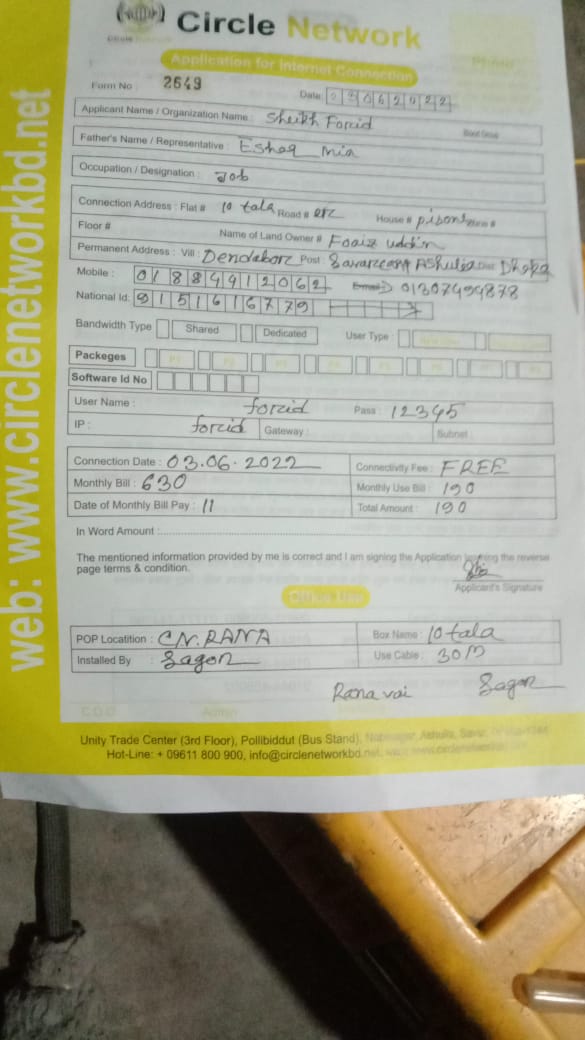 Circle Network
Application for Internet Connection
Photo
Form No : 2649
Date: 03062022
Applicant Name / Organization Name : Sheikh Forcid
Father's Name / Representative : Eshaq Mia
Occupation / Designation : Job
Connection Address : Flat # 10 tala Road # House #
Floor # Name of Land Owner # Foaiz uddin
Permanent Address : Vill : Dendabor Post Ashulia Dist Dhaka
Mobile : 01884912062 Email 01307494878
National Id: 9151616779
Bandwidth Type Shared Dedicated User Type
Packeges
Software Id No
User Name : forcid Pass : 12345
IP : forcid Gateway : Subnet :
Connection Date : 03.06.2022 Connectivity Fee : FREE
Monthly Bill : 630 Monthly Use Bill : 190
Date of Monthly Bill Pay : 11 Total Amount : 190
In Word Amount :
The mentioned information provided by me is correct and I am signing the Application the reverse
page terms & condition.
Applicant's Signature
POP Locatition : C.N. RANA Box Name : 10 tala
Installed By : Sagor Use Cable : 30M
Rana vai Sagor
C.O.O Admin
Unity Trade Center (3rd Floor), Pollibiddut (Bus Stand), Ashulia, Savar,
Hot-Line: + 09611 800 900, info@circlenetworkbd.net,
web: www.circlenetworkbd.net